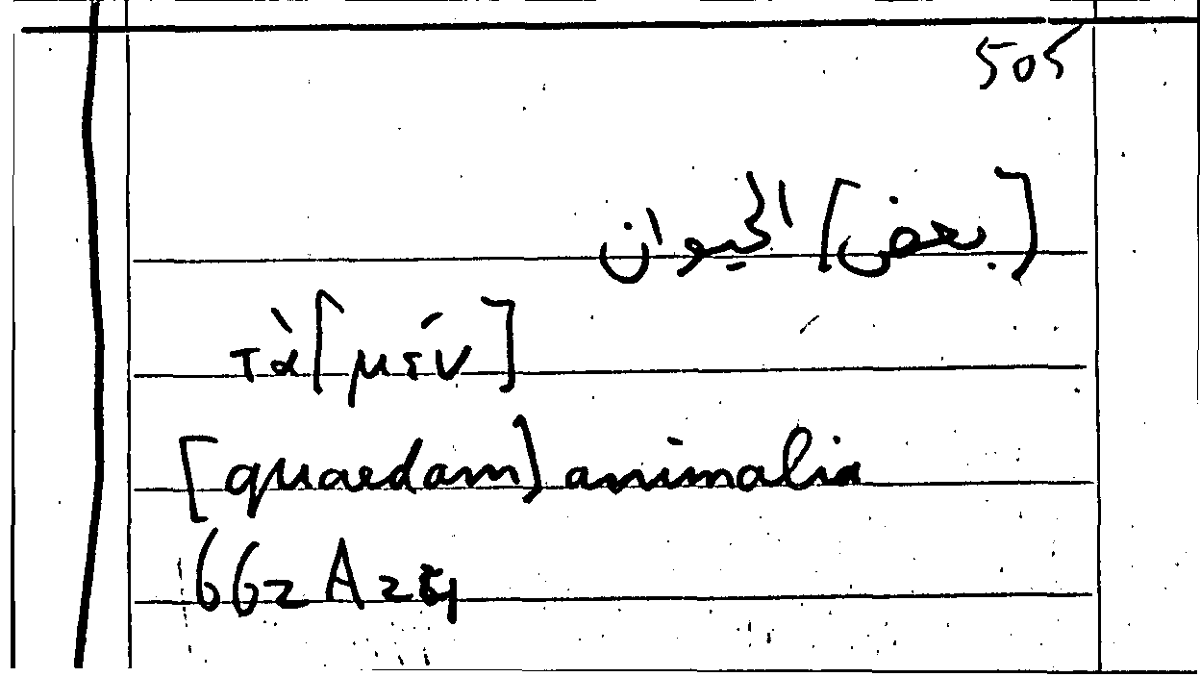 505
[بعض] الحيوان
τὰ [μέν]
[quaedam] animalia
662 A 24